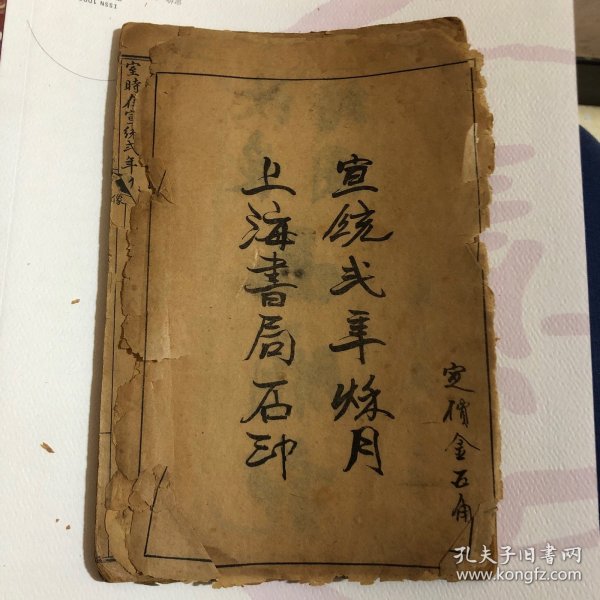 宣統弍年烁月
上海書局石印
定價金五角
室時在宣統弍年
像
孔夫子旧书网
www.kongfz.com
ISSN 100